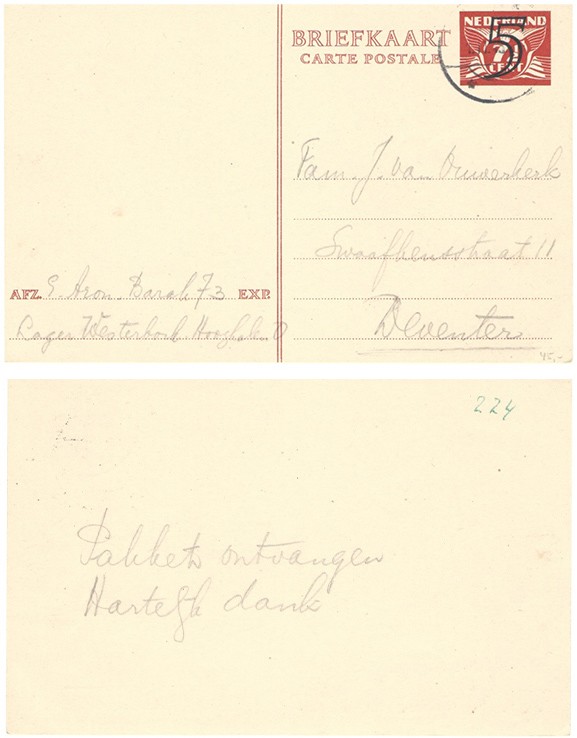 BRIEFKAART
CARTE POSTALE
NEDERLAND
5
7½
CENT
Fam. J. van Ouwerkerk
11
Deventer
AFZ. E. Aron. Barak 73 EXP.
Lager Westerbork Hooghalen O
45,-
224
Pakket ontvangen
Hartelijk dank